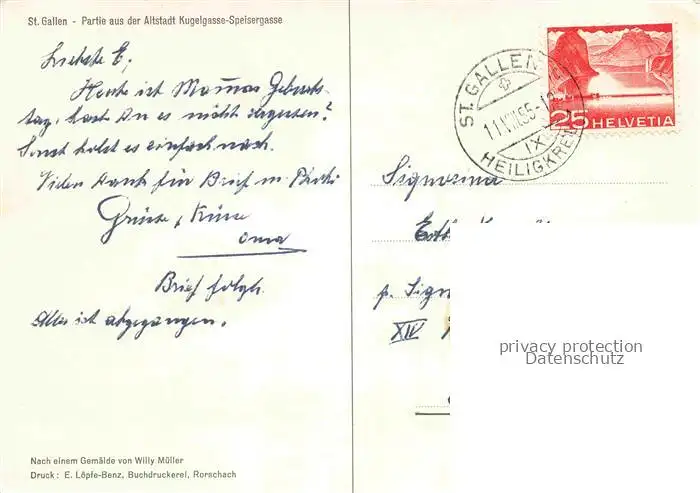 St. Gallen - Partie aus der Altstadt Kugelgasse-Speisergasse
Liebste E,
Heute ist Mamas Geburts-
tag, hast Du es nicht vergessen?
Sonst holst es einfach nach.
Vielen Dank für Brief m. Photi
Grüsse, Küsse
Oma
Brief folgt.
Alles ist abgegangen.
Nach einem Gemälde von Willy Müller
Druck: E. Löpfe-Benz, Buchdruckerei, Rorschach
ST. GALLEN
11.VIII.55-1
IX
HEILIGKREUZ
25 HELVETIA
Signorina
p. Sign
XIV
privacy protection
Datenschutz